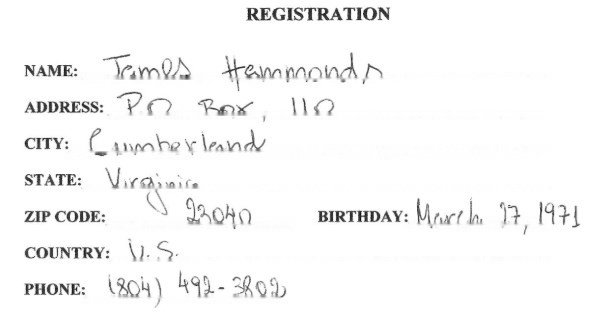 REGISTRATION
NAME: James Hammonds
ADDRESS: PO Box, 110
CITY: Cumberland
STATE: Virginia
ZIP CODE: 23040 BIRTHDAY: March 27, 1971
COUNTRY: U.S.
PHONE: (804) 492-3802